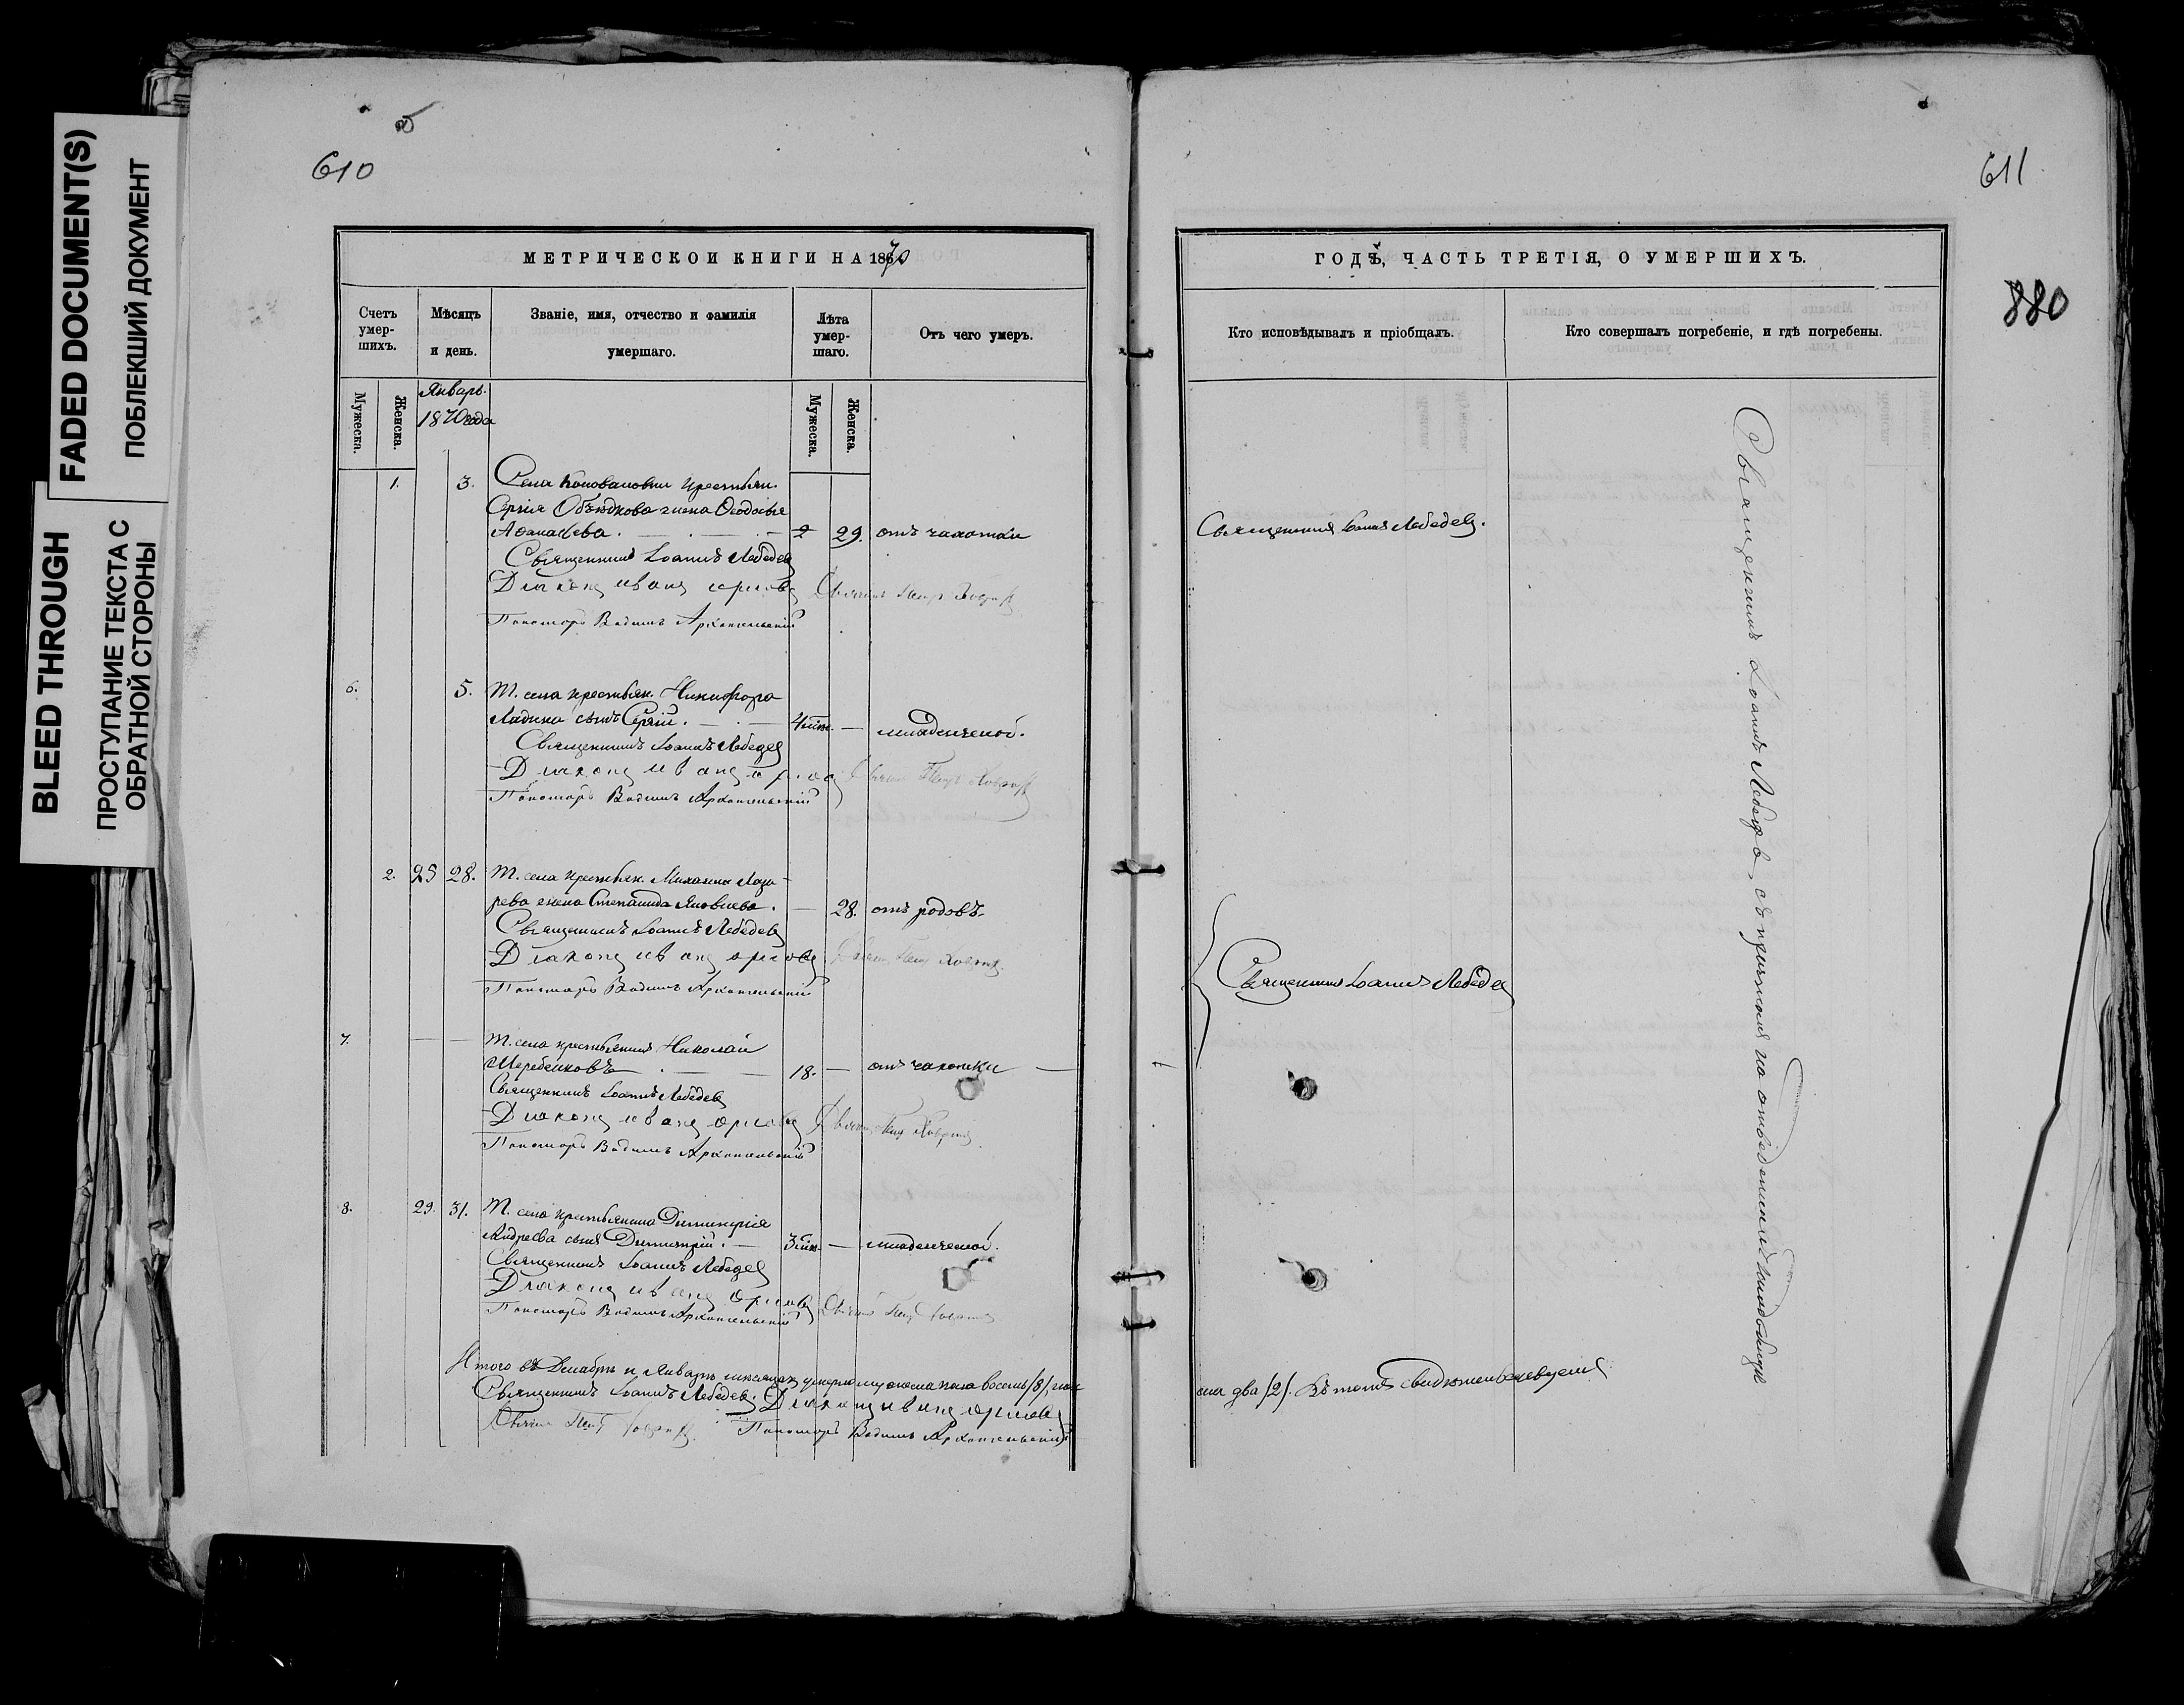 FADED DOCUMENT(S)
ПОБЛЕКШИЙ ДОКУМЕНТ
BLEED THROUGH
ПРОСТУПАНИЕ ТЕКСТА С
ОБРАТНОЙ СТОРОНЫ
610
МЕТРИЧЕСКОЙ КНИГИ НА 1870
Счетъ умер-шихъ.
Мѣсяцъ и день.
Званіе, имя, отчество и фамилія умершаго.
Лѣта умер-шаго.
Отъ чего умеръ.
Мужеска.
Женска.
Январь.
1870 года
Мужеска.
Женска.
1. 3. Села крестьян.
Сергія жена Ѳеодосья
Аѳанасьева. 29. отъ чахотки
Священникъ Іоаннъ Лебедевъ
Діаконъ Иванъ Орловъ
Пономарь Вадимъ Архангельскій
6. 5. Т. села крестьян. Никифора
Ладина сынъ Сергій. младенческой.
Священникъ Іоаннъ Лебедевъ
Діаконъ Иванъ Орловъ
Пономарь Вадимъ Архангельскій
2. 25 28. Т. села крестьян. Михаила Лаза-
рева жена Степанида Яковлева. 28. отъ родовъ.
Священникъ Іоаннъ Лебедевъ
Діаконъ Иванъ Орловъ
Пономарь Вадимъ Архангельскій
7. — — Т. села крестьянинъ Николай
18. — отъ чахотки
Священникъ Іоаннъ Лебедевъ
Діаконъ Иванъ Орловъ
Пономарь Вадимъ Архангельскій
8. 29. 31. Т. села крестьянина Димитрія
Андреева сынъ Димитрій. — младенческой.
Священникъ Іоаннъ Лебедевъ
Діаконъ Иванъ Орловъ
Пономарь Вадимъ Архангельскій
Итого въ Декабрѣ и Январѣ мѣсяцахъ умерло мужеска пола восемь /8/, жен
Священникъ Іоаннъ Лебедевъ. Діаконъ Иванъ Орловъ
Пономарь Вадимъ Архангельскій
611
880
ГОДЪ, ЧАСТЬ ТРЕТІЯ, О УМЕРШИХЪ.
Кто исповѣдывалъ и пріобщалъ.
Кто совершалъ погребеніе, и гдѣ погребены.
Священникъ Іоаннъ Лебедевъ.
Священникъ Іоаннъ Лебедевъ
Священникъ Іоаннъ Лебедевъ съ причтомъ на отведенномъ кладбищѣ
ска два /2/. Въ томъ свидѣтельствуемъ